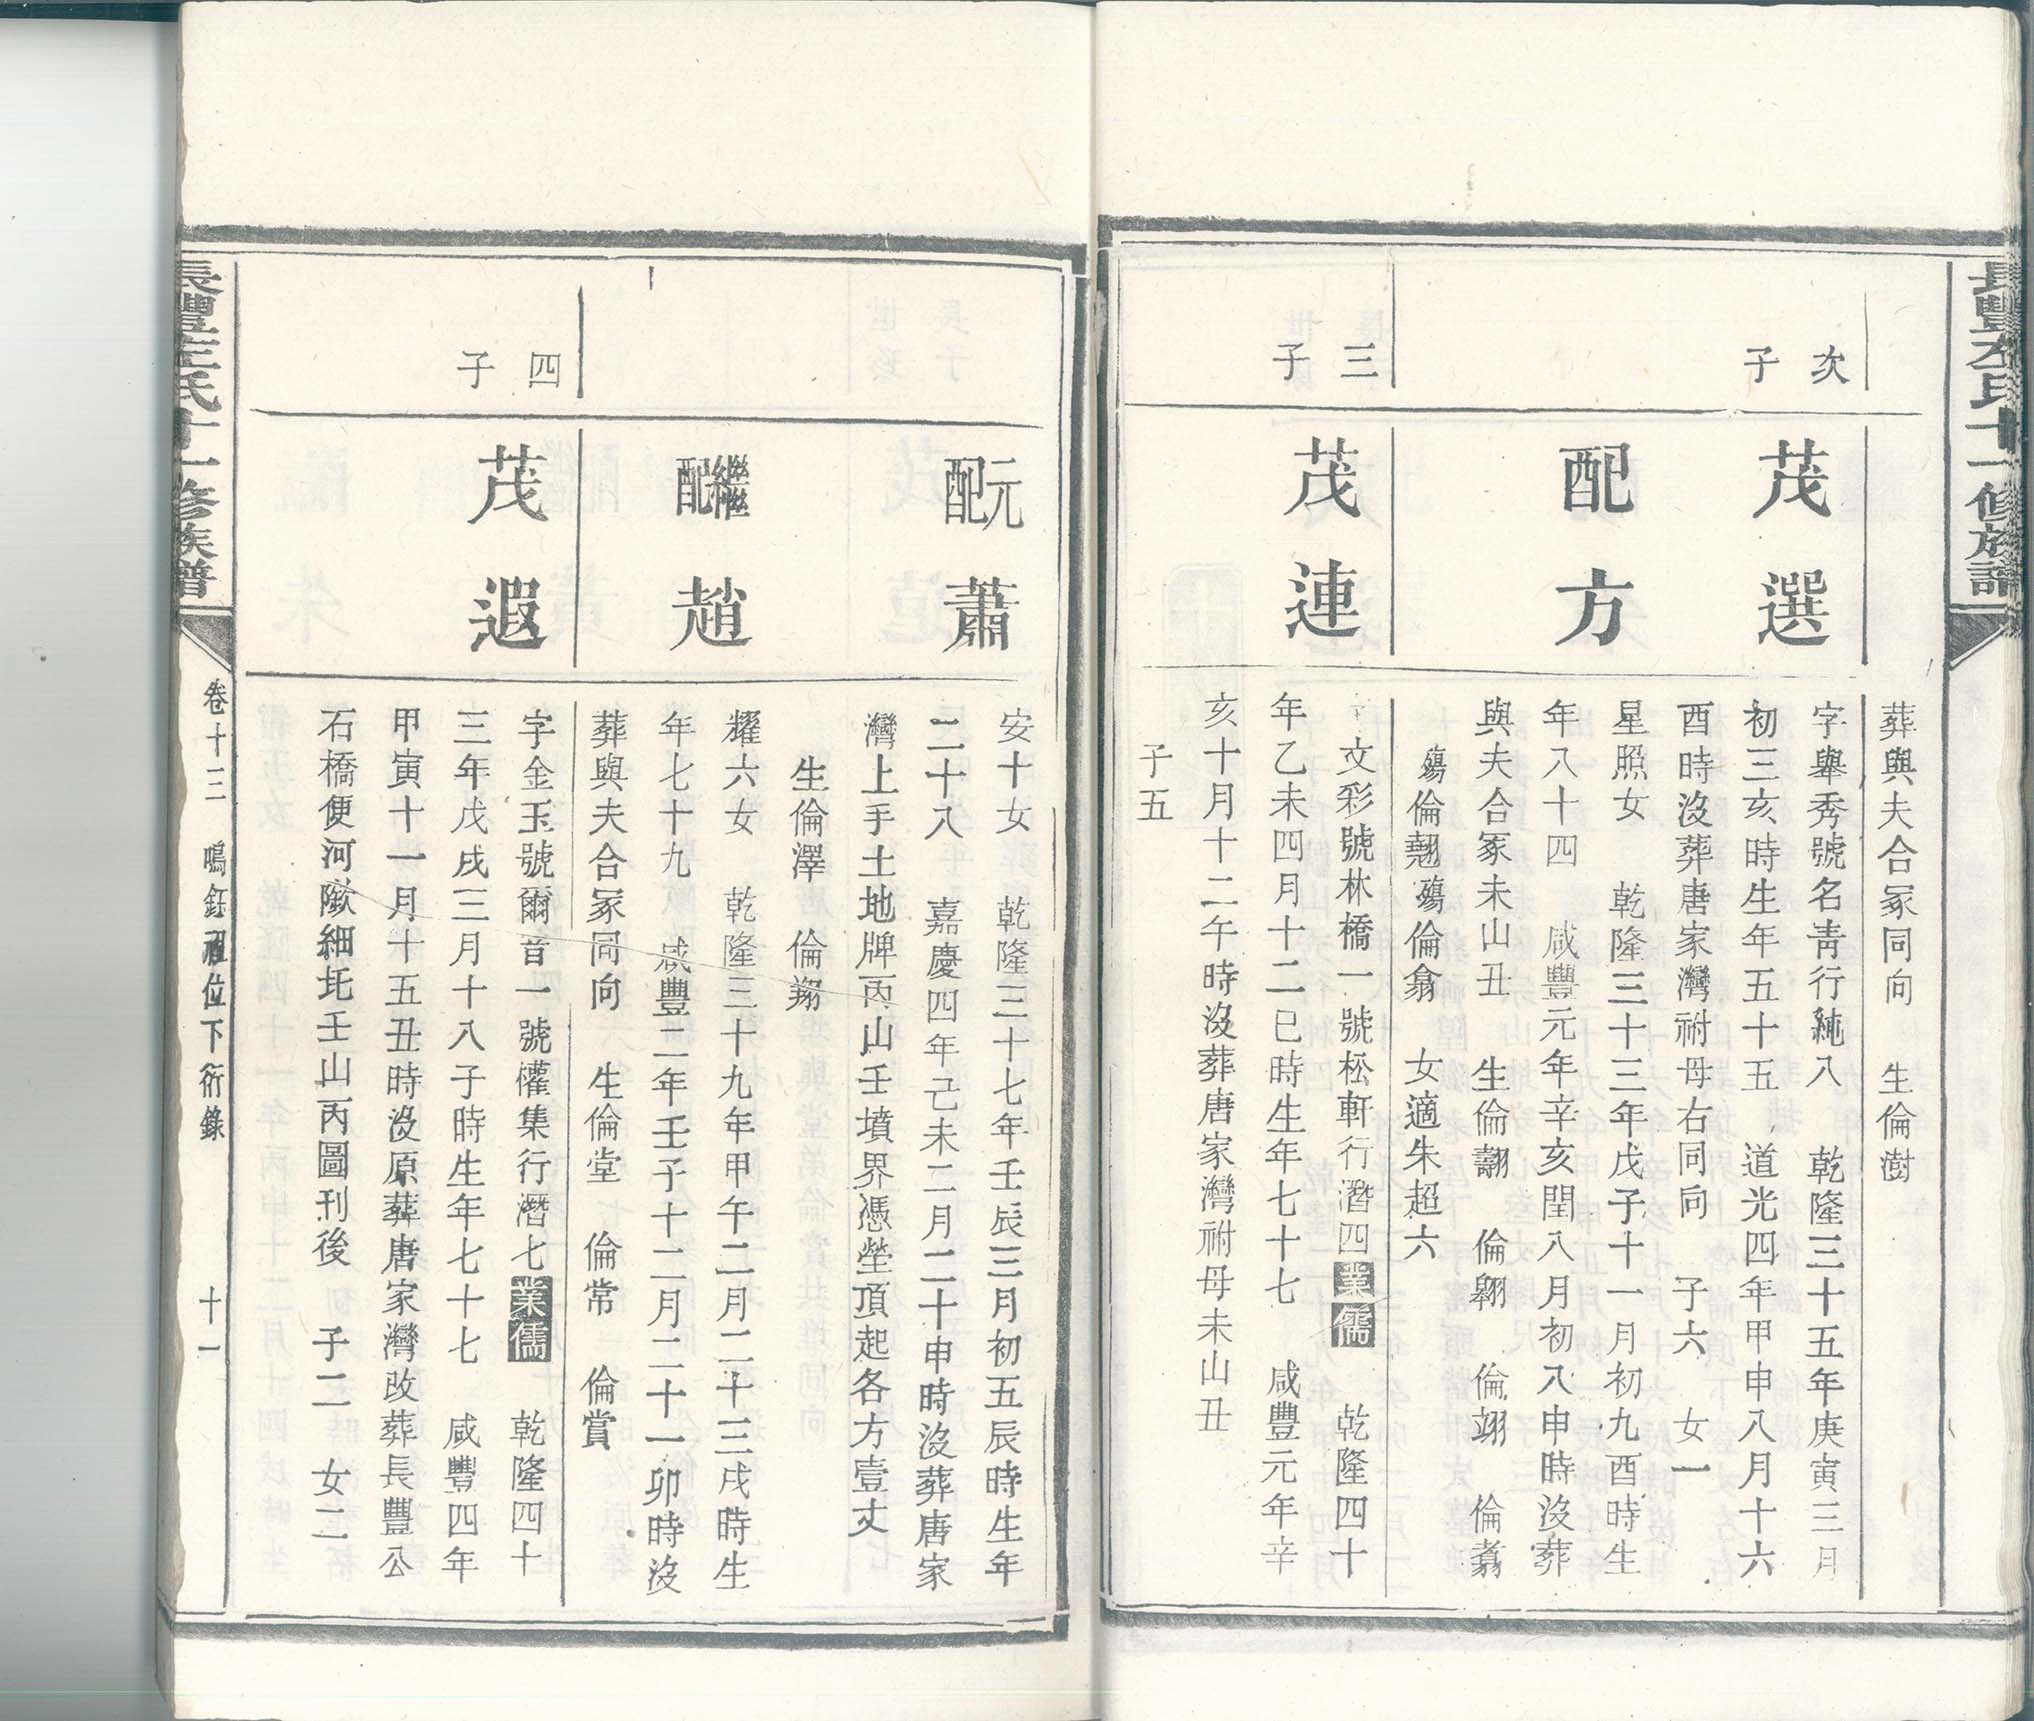 長豐左氏十一修族譜
葬與夫合冢同向　生倫澍
次子
茂選
字舉秀號名青行純八　乾隆三十五年庚寅三月
初三亥時生年五十五　道光四年甲申八月十六
酉時沒葬唐家灣祔母右同向　子六　女一
配方
星照女　乾隆三十三年戊子十一月初九酉時生
年八十四　咸豐元年辛亥閏八月初八申時沒葬
與夫合冢未山丑　生倫翿　倫翱　倫翊　倫翥
殤倫翹殤倫翕　女適朱超六
三子
茂連
字文彩號林橋一號松軒行潛四業儒　乾隆四十
年乙未四月十二巳時生年七十七　咸豐元年辛
亥十月十二午時沒葬唐家灣祔母未山丑
子五
元配蕭
安十女　乾隆三十七年壬辰三月初五辰時生年
二十八　嘉慶四年己未二月二十申時沒葬唐家
灣上手土地牌丙山壬墳界憑塋頂起各方壹丈
生倫澤　倫翔
繼配趙
耀六女　乾隆三十九年甲午二月二十三戌時生
年七十九　咸豐二年壬子十二月二十一卯時沒
葬與夫合冢同向　生倫堂　倫常　倫賞
四子
茂遐
字金玉號爾音一號權集行潛七業儒　乾隆四十
三年戊戌三月十八子時生年七十七　咸豐四年
甲寅十一月十五丑時沒原葬唐家灣改葬長豐公
石橋便河墩細圫壬山丙圖刊後　子二　女二
長豐左氏十一修族譜
卷十三　鳴鈺祖位下衍錄　十一